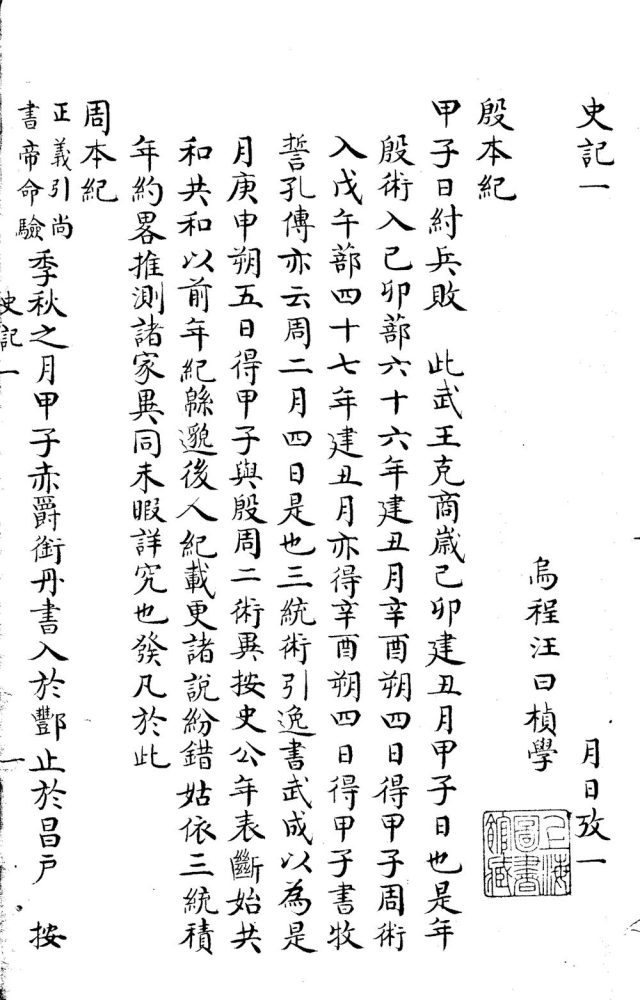 史記一
月日攷一
烏程汪曰楨學
殷本紀
甲子日紂兵敗 此武王克商歲己卯建丑月甲子日也是年
殷術入己卯蔀六十六年建丑月辛酉朔四日得甲子周術
入戊午蔀四十七年建丑月亦得辛酉朔四日得甲子書牧
誓孔傳亦云周二月四日是也三統術引逸書武成以為是
月庚申朔五日得甲子與殷周二術異按史公年表斷始共
和共和以前年紀緜邈後人紀載更諸說紛錯姑依三統積
年約畧推測諸家異同未暇詳究也發凡於此
周本紀
正義引尚
書帝命驗
季秋之月甲子赤爵銜丹書入於酆止於昌戶 按
史記一
一
上海
圖書
館藏